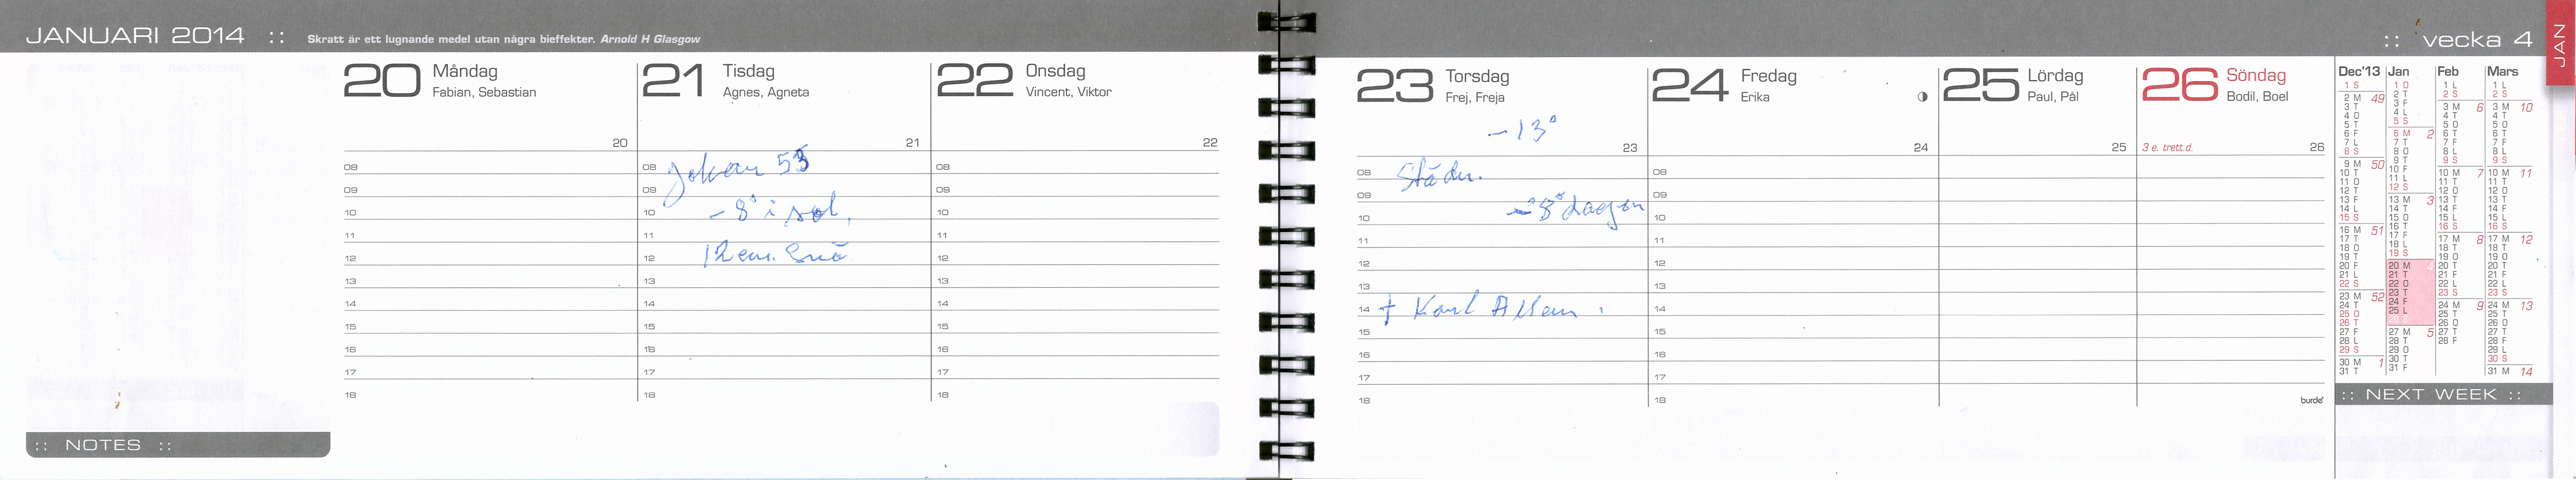 JANUARI 2014 :: Skratt är ett lugnande medel utan några bieffekter. Arnold H Glasgow
20 Måndag
Fabian, Sebastian
20
08
09
10
11
12
13
14
15
16
17
18
21 Tisdag
Agnes, Agneta
21
08 Johan 53
09
10 -8° i sol,
11
12 12 cm. Snö
13
14
15
16
17
18
22 Onsdag
Vincent, Viktor
22
08
09
10
11
12
13
14
15
16
17
18
:: NOTES ::
:: vecka 4
JAN
23 Torsdag
Frej, Freja
-13°
23
08 Städn.
09
10 -8° dagen
11
12
13
14 † Karl
15
16
17
18
24 Fredag
Erika
24
08
09
10
11
12
13
14
15
16
17
18
25 Lördag
Paul, Pål
25
26 Söndag
Bodil, Boel
3 e. trett.d. 26
burde
Dec'13 Jan Feb Mars
1 S 1 O 1 L 1 L
2 M 49 2 T 2 S 2 S
3 T 3 F 3 M 6 3 M 10
4 O 4 L 4 T 4 T
5 T 5 S 5 O 5 O
6 F 6 M 2 6 T 6 T
7 L 7 T 7 F 7 F
8 S 8 O 8 L 8 L
9 M 50 9 T 9 S 9 S
10 T 10 F 10 M 7 10 M 11
11 O 11 L 11 T 11 T
12 T 12 S 12 O 12 O
13 F 13 M 3 13 T 13 T
14 L 14 T 14 F 14 F
15 S 15 O 15 L 15 L
16 M 51 16 T 16 S 16 S
17 T 17 F 17 M 8 17 M 12
18 O 18 L 18 T 18 T
19 T 19 S 19 O 19 O
20 F 20 M 4 20 T 20 T
21 L 21 T 21 F 21 F
22 S 22 O 22 L 22 L
23 M 52 23 T 23 S 23 S
24 T 24 F 24 M 9 24 M 13
25 O 25 L 25 T 25 T
26 T 26 O 26 O
27 F 27 M 5 27 T 27 T
28 L 28 T 28 F 28 F
29 S 29 O 29 L
30 M 1 30 T 30 S
31 T 31 F 31 M 14
:: NEXT WEEK ::